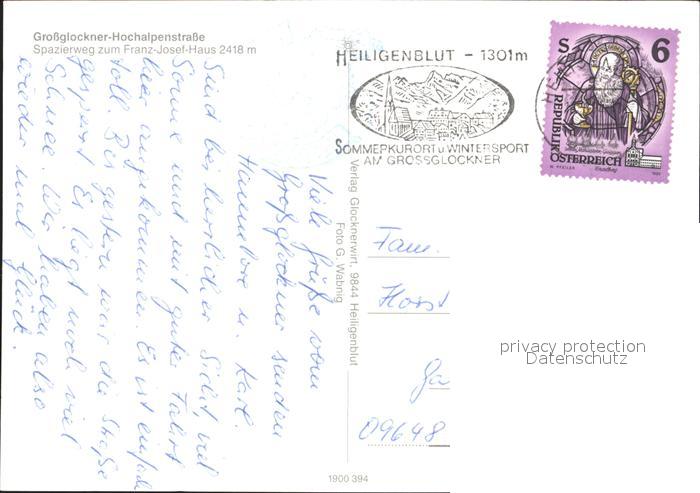 Großglockner-Hochalpenstraße
Spazierweg zum Franz-Josef-Haus 2418 m
HEILIGENBLUT - 1301m
SOMMERKURORT u. WINTERSPORT
AM GROSSGLOCKNER
S 6
REPUBLIK
ÖSTERREICH
Viele Grüße vom
Großglockner senden
Hannelore u. Karl.
Sind bei herrlicher Sicht, viel
Sonne und mit guter Fahrt
hier angekommen. Es ist einfach
toll. Bis gestern war die Straße
gesperrt. Es liegt noch viel
Schnee. Wir haben also
wieder mal Glück.
Verlag Glocknerwirt, 9844 Heiligenblut
Foto G. Wabnig
Fam.
Horst
Ga
09648
privacy protection
Datenschutz
1900 394